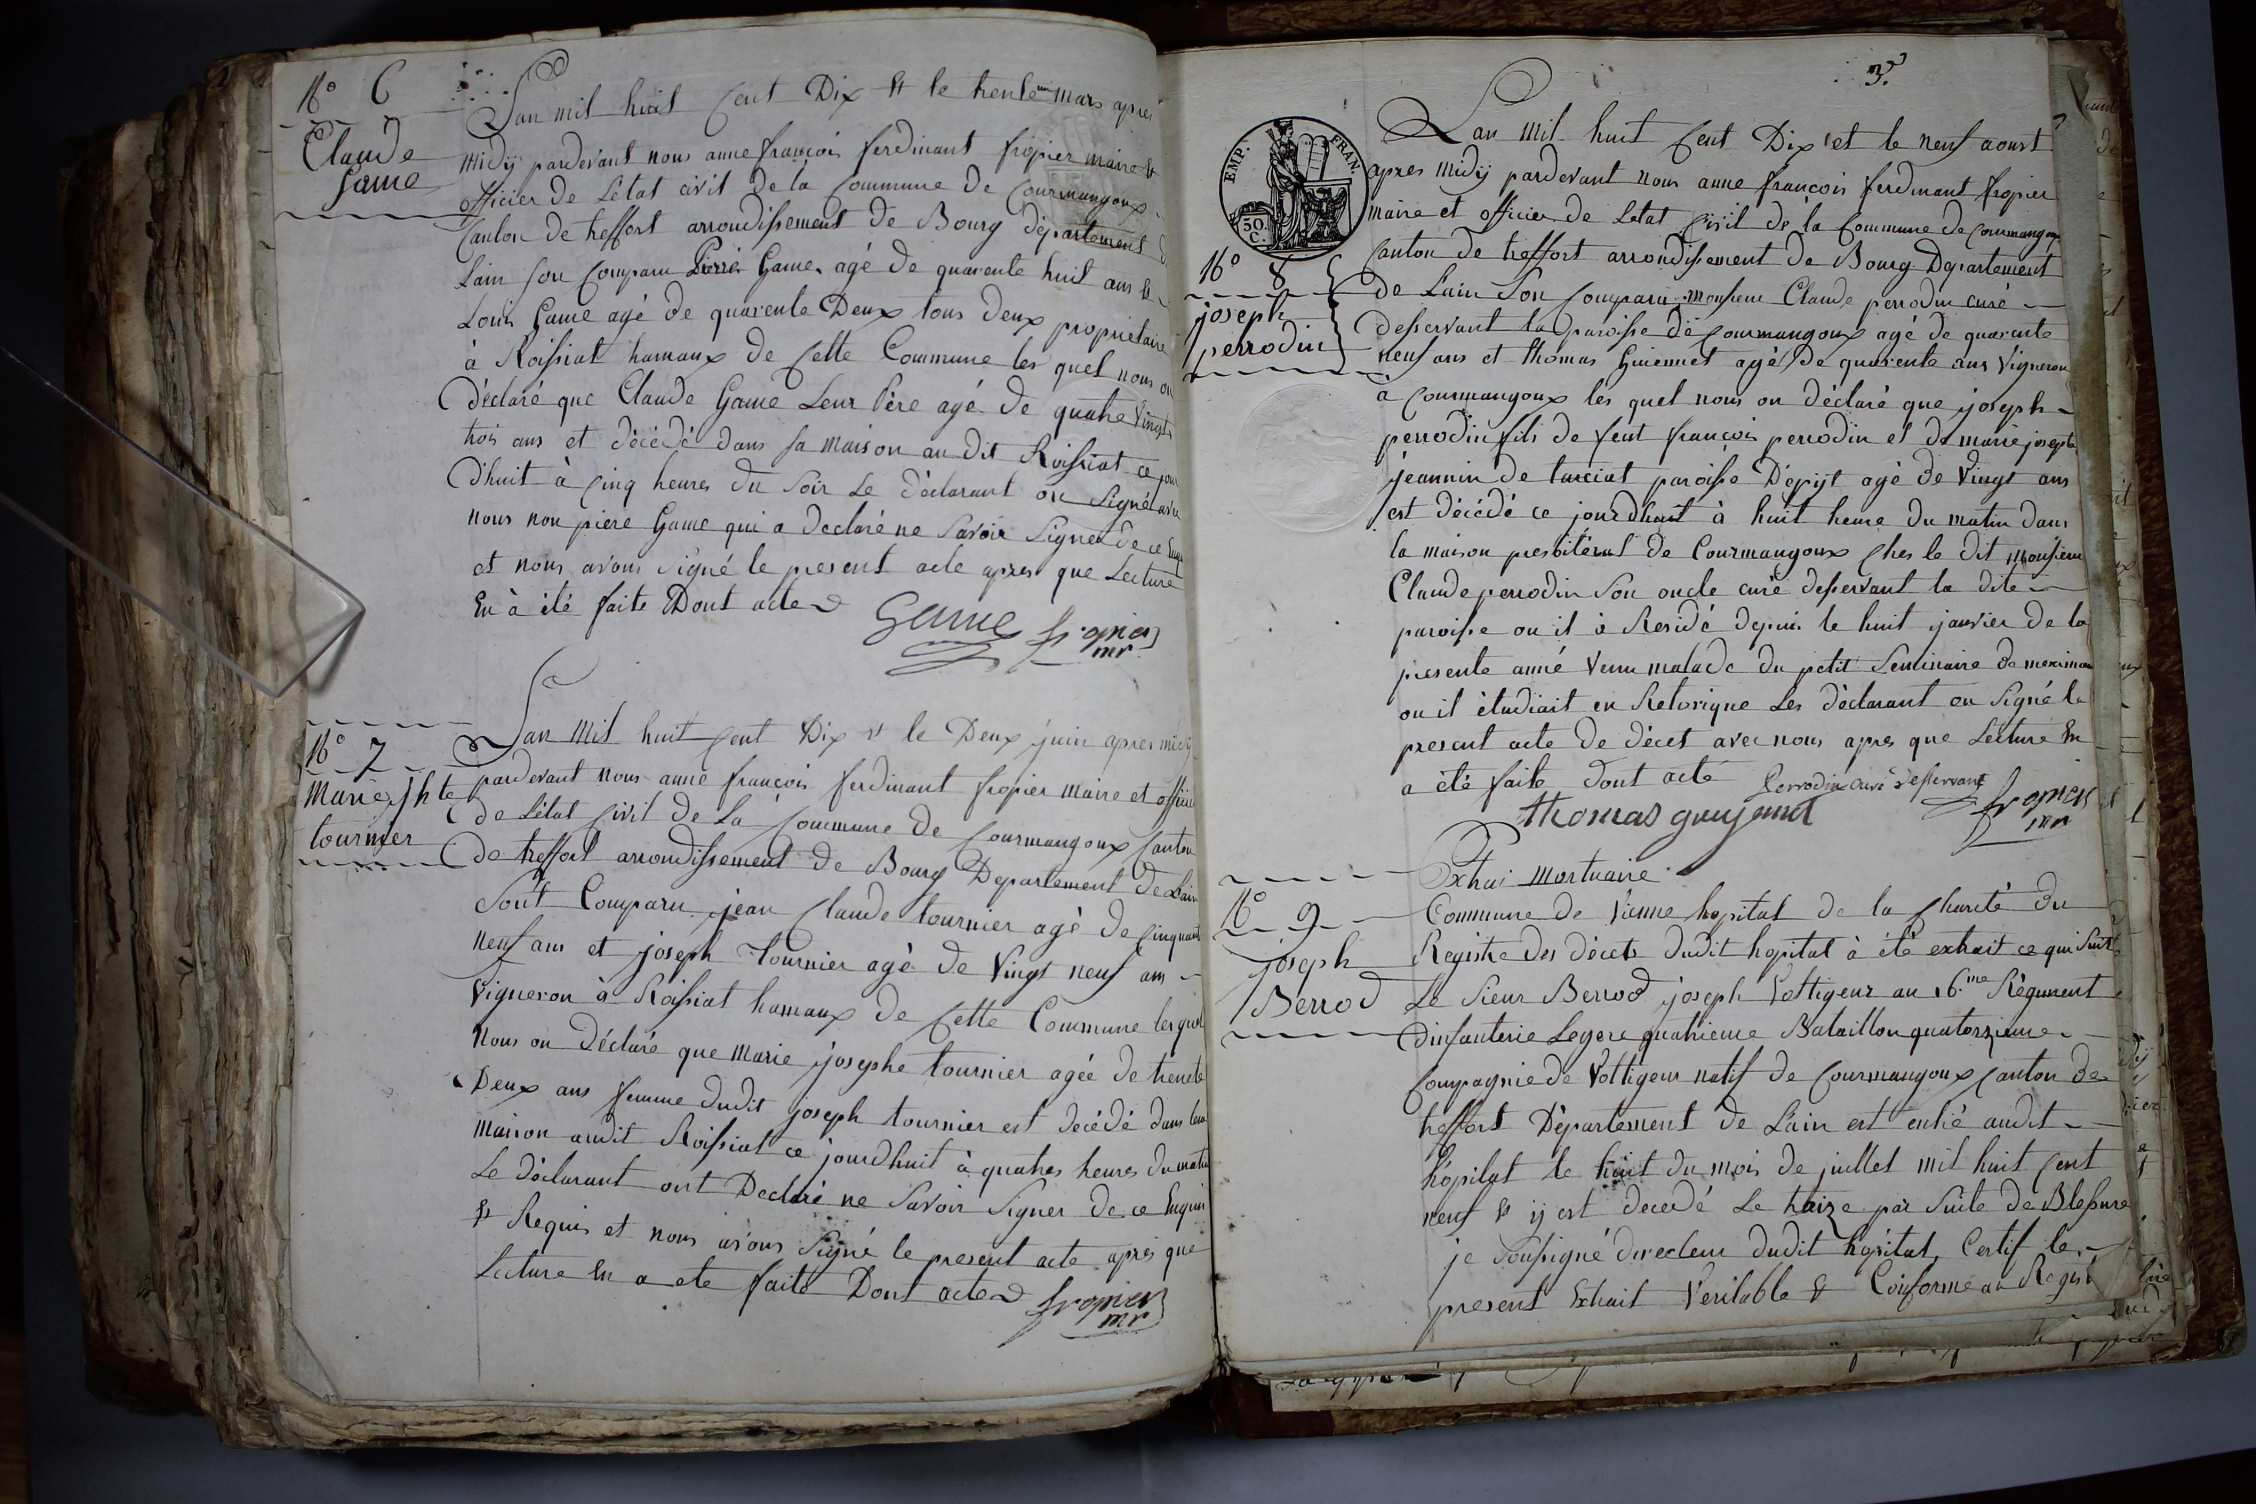 N° 6
Claude
Game
Lan mil huit Cent Dix et le trente un mars apres
midÿ pardevant nous anne françois ferdinant fropier maire et
officier de Létat civil de la Commune de Courmangoux
Canton de treffort arrondissement de Bourg département de
Lain son Comparu Pierre Game agé de quarente huit ans et
Louis Game agé de quarente Deux tous deux propriétaire
à Roissiat hamaux de Cette Commune les quel nous on
Déclaré que Claude Game Leur Père agé de quatre Vingts
trois ans et décédé dans sa maison au dit Roissiat ce jour
Dhuit à Cinq heures du Soir Le déclarant on Signé avec
nous non piere Game qui a declaré ne Savoir Signer de ce Enquis
et nous avons Signé le present acte apres que Lecture
En à été faite Dont acte
Game fropier
mr
N° 7
Marie Jhte
tournier
Lan Mil huit Cent Dix et le Deux juin apres midÿ
pardevant nous anne françois ferdinant fropier maire et officier
de Létat Civil de La Commune de Courmangoux Canton
de treffort arrondissement de Bourg Departement de Lain
Sont Comparu jean Claude tournier agé de Cinquante
neuf ans et joseph tournier agé de Vingt neuf ans
Vigneron à Roissiat hamaux de Cette Commune les quel
Nous on Déclaré que marie josephe tournier agée de trente
Deux ans femme dudit joseph tournier est décédé dans leur
maison audit Roissiat ce jourdhuit à quatres heures du matin
Le déclarant ont Declaré ne Savoir Signer de ce Enquis
et Requis et nous avons Signé le present acte après que
Lecture En a ete faite Dont acte
fropier
mr
3.e
EMP. FRAN.
50.
C.
Lan Mil huit Cent Dix et le neuf aoust
apres Midÿ pardevant nous anne françois ferdinant fropier
maire et officier de Létat Civil de la Commune de Courmangoux
Canton de treffort arrondissement de Bourg Departement
N° 8
joseph
perrodin
de Lain Son Comparu Monsieur Claude perrodin curé
desservant la paroisse de Courmangoux agé de quarente
neuf ans et thomas Guiennet agé de quarente ans Vigneron
à Courmangoux les quel nous on déclaré que joseph
perrodin fils de feut françois perrodin et de marie josephte
jeannin de tarciat paroisse Dépijt agé de Vingt ans
est décédé ce jourdhuit à huit heure du matin dans
la maison presbitéral de Courmangoux Ches le dit Monsieur
Claude perrodin Son oncle curé desservant la dite
paroisse ou il à Residé depuis le huit janvier de la
presente année Venu malade du petit Seminaire de meximieu
ou il étudiait en Retorique Les déclarant on Signé le
present acte de décet avec nous apres que Lecture En
a été faite dont acte Perrodin curé desservant
thomas guyennet fropier
mr
N° 9
joseph
Berrod
Extrai mortuaire
Commune de Vienne hopital de la Charité du
Registre des décets dudit hopital à été extrait ce qui Suit
Le Sieur Berrod joseph Voltigeur au 16.me Régiment
dinfanterie Legere quatrieme Bataillon quatorzieme
Compagnie de Voltigeur natif de Courmangoux Canton de
treffort Département de Lain est entré audit
hôpital le huit du mois de juillet mil huit Cent
neuf et ij est decedé Le treize par Suite de Blessure
je Soussigné directeur dudit hopital Certif le
present Extrait Veritable et Conforme au Regist